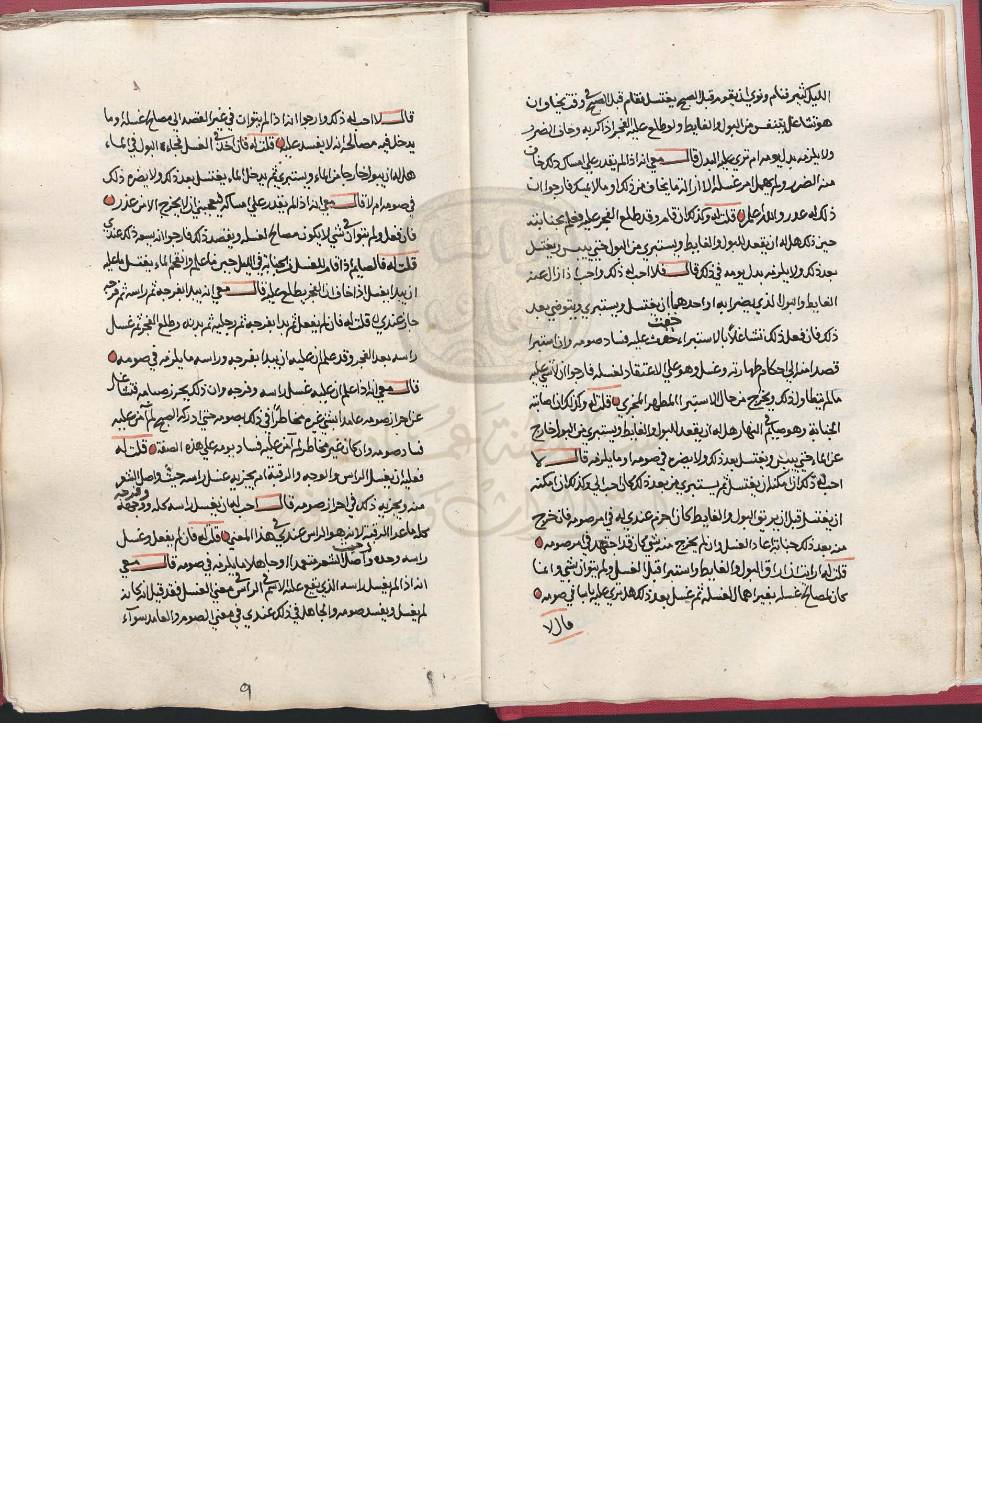 الليل كثير فنام ونوى ان يقوم قبل الصبح يغتسل فقام قبل الصبح في وقت يخاف ان
هو تشاغل يتنفس من البول والغايط ولو طلع عليه الفجر اذا كربه وخاف الضرر
ولا يلزمه بدل يومه ام ترى عليه البدل قال معي انه اذا لم يقدر على امساك ذلك خاف
منه الضرر ولم يهمل امر غسله الا ازالة ما يخاف من ذلك او ما لا يمسكه فارجوا ان
ذلك له عذر والله اعلم قلت له وكذلك ان قام وقد طلع الفجر عليه فعلم بجنابته
حين ذلك هل له ان يقعد للبول والغايط ويستبري من البول حتى ييبس ويغتسل
بعد ذلك ولا يلزمه بدل يومه في ذلك قال فلا احب له ذلك واحب اذا زال عنه
الغايط والبول الذي يضرا به او احدهما ان يغتسل ويستبري ويتوضى بعد
ذلك فان فعل ذلك تشاغلا بالاستبراء خفت عليه فساد صومه وان استبرا
قصدا منه الى احكام طهارته وغسله وهو على الاعتقاد لغسله فارجوا ان لا شي عليه
مالم يتطاول ذلك ويخرج من حال الاستبرا المطهر المجزي قلت له وكذلك ان اصابته
الجنابة وهو صايم في النهار هل له ان يقعد للبول والغايط ويستبري من البول خارج
عن الماء حتى ييبس ويغتسل بعد ذلك ولا يضره في صومه او ما يلزمه قال لا
احب له ذلك ان امكنه ان يغتسل ثم يستبري من بعد ذلك كان احب الي وكذلك ان امكنه
ان يغتسل قبل ان يريق البول والغايط كان احزم عندي له في امر صومه فان خرج
منه بعد ذلك جنابة اعاد الغسل وان لم يخرج منه شي كان قد اجتهد في امر صومه
قلت له ارايت ان اراق البول والغايط واستبرا قبل الغسل ولم يتوان بشي وانما
كان لمصالح غسله بغير اهمال لغسله ثم غسل بعد ذلك هل ترى عليه باسا في صومه
قال لا
قال لا احب له ذلك وارجوا انه اذا لم يتوان في غير القصد الى مصالح غسله وما
يدخل فيه مصالحه انه لا يفسد عليه قلت له فان اخذ في الغسل فجاءه البول في الماء
هل له ان يبول خارجا من الماء ويستبري ثم يدخل الماء يغتسل بعد ذلك ولا يضره ذلك
في صومه ام لا قال معي انه اذا لم يقدر على امساكه فيعجبني ان لا يخرج الا من عذر
فان فعل ولم يتوان في شي لا يكون من مصالح لغسله ويقصد ذلك فارجوا انه يسعه ذلك عندي
قلت له فالصايم اذا قام للغسل من الجنابة في الليل حين ما علم واقتحم الماء يغتسل ما عليه
ان يبدا يغسل اذا خاف ان الفجر يطلع عليه قال معي انه يبدا بفرجه ثم راسه ثم فرجه
جاز عندي قلت له فان لم يفعل ثم بدا بفرجه ثم رجليه ثم بدنه وطلع الفجر ثم غسل
راسه بعد الفجر وقد علم ان عليه ان يبدا بفرجه وراسه ما يلزمه في صومه
قال معي انه اذا علم ان عليه غسل راسه وفرجه وان ذلك يحرز صيامه فتشاغل
عن احراز صومه عامدا بشي غيره مخاطرا في ذلك بصومه حتى ادركه الصبح لم آمن عليه
فساد صومه وان كان غير مخاطر لم آمن عليه فساد يومه على هذه الصفة قلت له
فعليه ان يغسل الراس والوجه والرقبة ام يجزيه غسل راسه حيث واصل الشعر
منه ويجزيه ذلك في احراز صومه قال احب له ان يغسل راسه كله ووجهه وفرجه
كله ما عدا الرقبة لانه هو الراس عندي في هذا المعنى قلت له فان لم يفعل وغسل
راسه وحده وحيث واصل الشعر متعمدا او جاهلا ما يلزمه في صومه قال معي
انه اذا لم يغسل راسه الذي يقع عليه الاسم في الراس في معنى الغسل فقد قيل انه كانه
لم يغسل ويفسد صومه والجاهل في ذلك عندي في معنى الصوم والعامد سوآء
٩